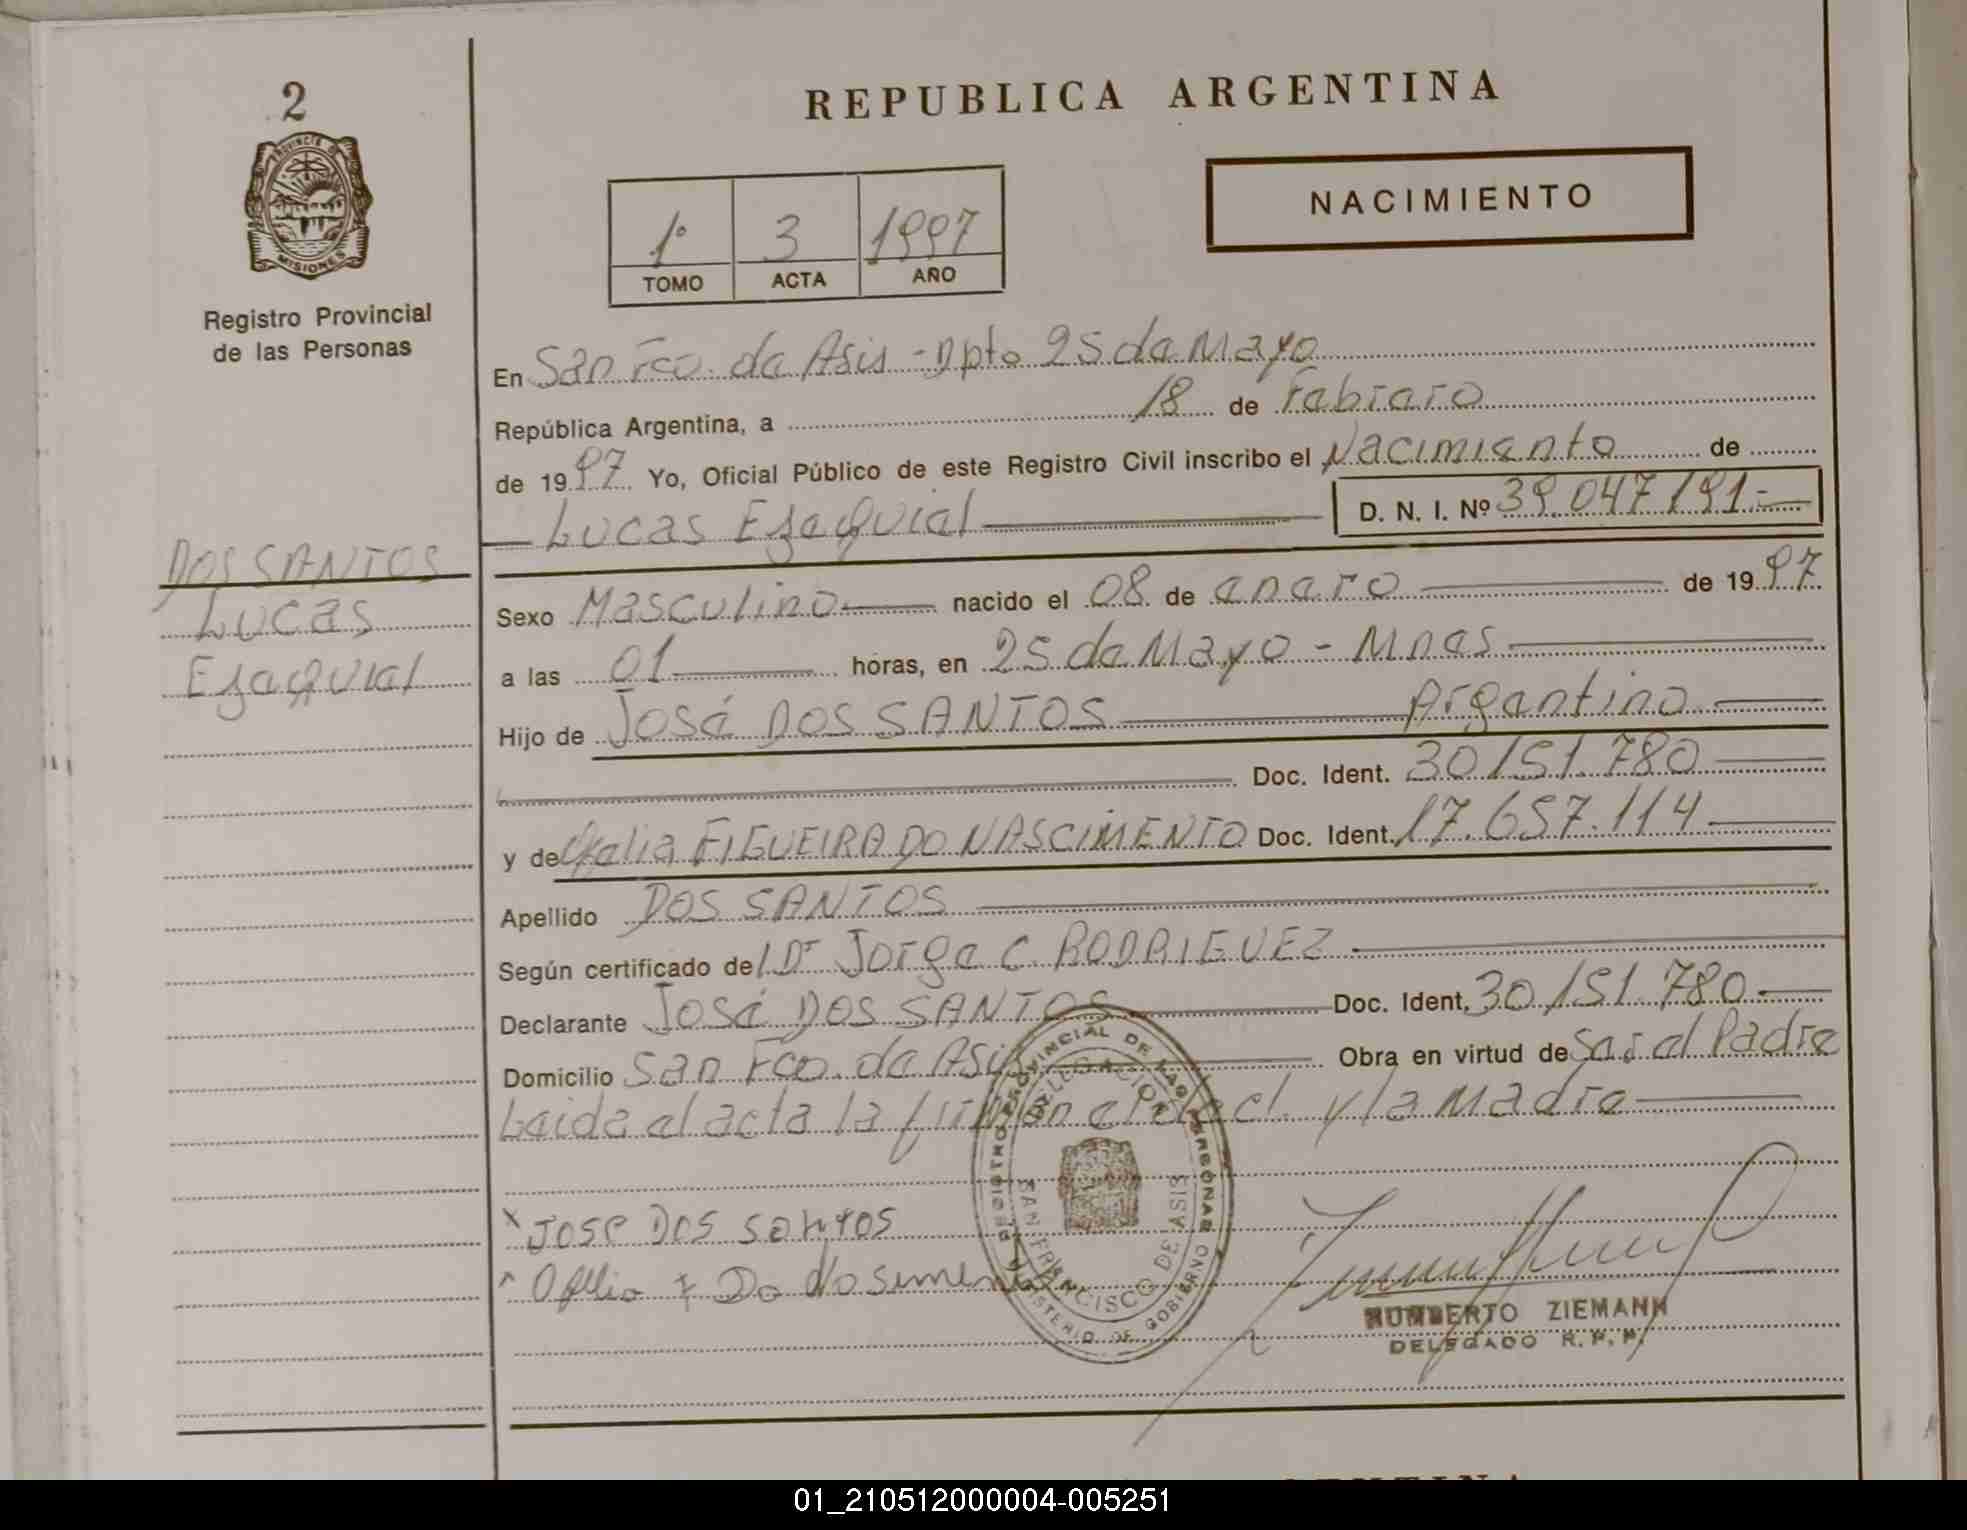 2
PROVINCIA DE
MISIONES
Registro Provincial
de las Personas
DOS SANTOS
Lucas
Ezequiel
REPUBLICA ARGENTINA
NACIMIENTO
1º 3 1997
TOMO ACTA AÑO
En San Fco. de Asis - Dpto 25 de Mayo
República Argentina, a 18 de Febrero
de 1997 Yo, Oficial Público de este Registro Civil inscribo el Nacimiento de
Lucas Ezequiel D. N. I. Nº 39.047191.-
Sexo Masculino nacido el 08 de enero de 1997
a las 01 horas, en 25 de Mayo - Mnes
Hijo de José DOS SANTOS Argentino
Doc. Ident. 30151.780
y de Ofelia FIGUEIRA DO NASCIMENTO Doc. Ident. 17.657.114
Apellido DOS SANTOS
Según certificado del Dr Jorge C. RODRIGUEZ
Declarante José DOS SANTOS Doc. Ident. 30151.780
Domicilio San Fco. de Asis Obra en virtud de Ser el Padre
Leida el acta la firman el Decl. y la Madre
x JOSE DOS SANTOS
REGISTRO PROVINCIAL DE LAS PERSONAS
DELEGACION
SAN FRANCISCO DE ASIS
MINISTERIO DE GOBIERNO
HUMBERTO ZIEMANN
DELEGADO R. P. P.
01_210512000004-005251